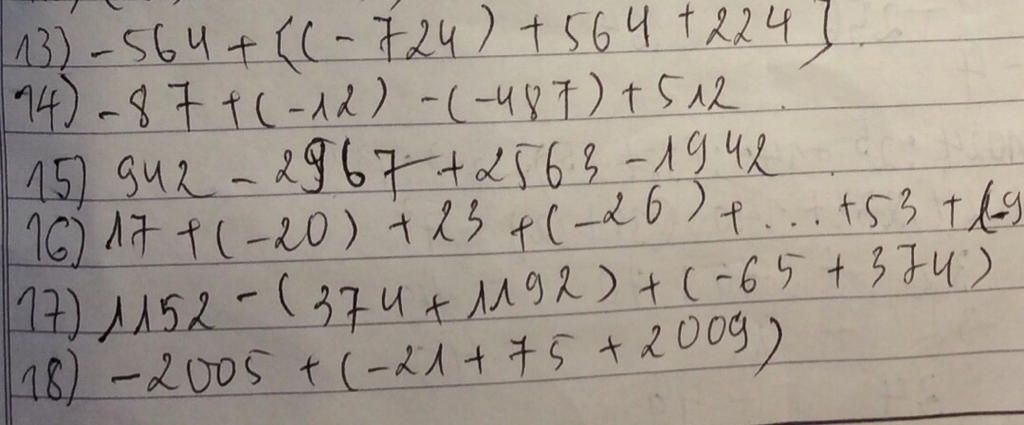 13) -564 + [(-724) + 564 + 224]
14) -87 + (-12) - (-487) + 512
15) 942 - 2967 + 2563 - 1942
16) 17 + (-20) + 23 + (-26) + ... + 53 + (-
17) 1152 - (374 + 1192) + (-65 + 374)
18) -2005 + (-21 + 75 + 2009)